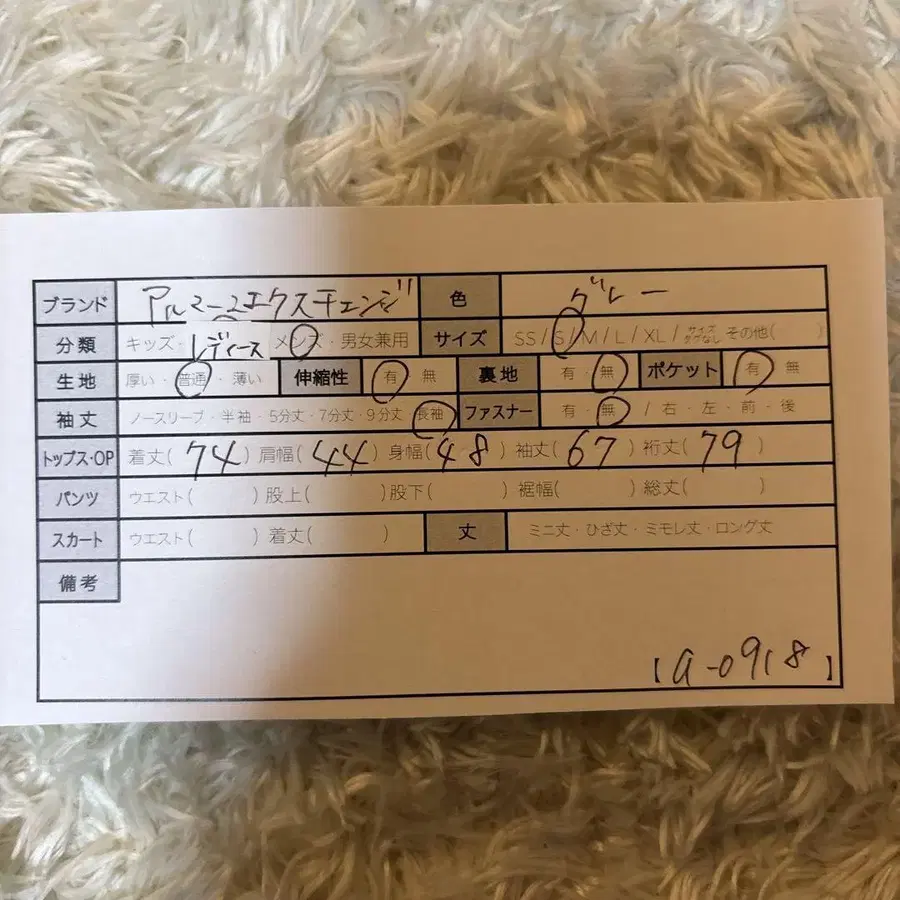 ブランド アルマーニエクスチェンジ 色 グレー
分類 キッズ・レディース メンズ・男女兼用 サイズ SS/S/M/L/XL/サイズ表記なし その他( )
生地 厚い・普通・薄い 伸縮性 有・無 裏地 有・無 ポケット 有・無
袖丈 ノースリーブ・半袖・5分丈・7分丈・9分丈・長袖 ファスナー 有・無 / 右・左・前・後
トップス・OP 着丈(74) 肩幅(44) 身幅(48) 袖丈(67) 裄丈(79)
パンツ ウエスト( ) 股上( ) 股下( ) 裾幅( ) 総丈( )
スカート ウエスト( ) 着丈( ) 丈 ミニ丈・ひざ丈・ミモレ丈・ロング丈
備考
【a-0918】